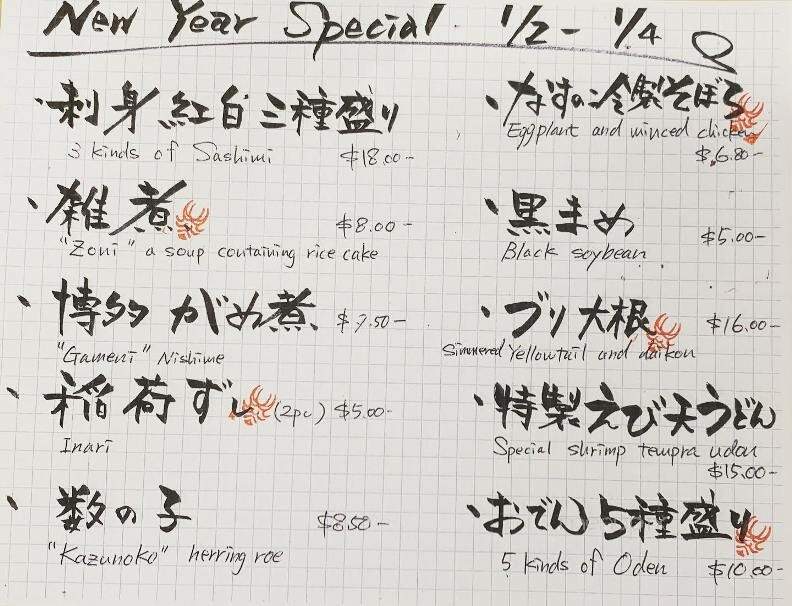 New Year Special 1/2 - 1/4
・刺身 紅白 三種盛り
3 kinds of Sashimi $18.00-
・雑煮
$8.00-
"Zoni" a soup containing rice cake
・博多 がめ煮 $7.50-
"Gameni" Nishime
・稲荷ずし (2pc) $5.00-
Inari
・数の子
$8.50-
"Kazunoko" herring roe
・なすの冷製そぼろ
Eggplant and minced chicken
$6.80-
・黒まめ
$5.00-
Black soybean
・ブリ大根 $16.00-
Simmered Yellowtail and daikon
・特製えび天うどん
Special shrimp tempra udon
$15.00-
・おでん 5種盛り
5 kinds of Oden $10.00-